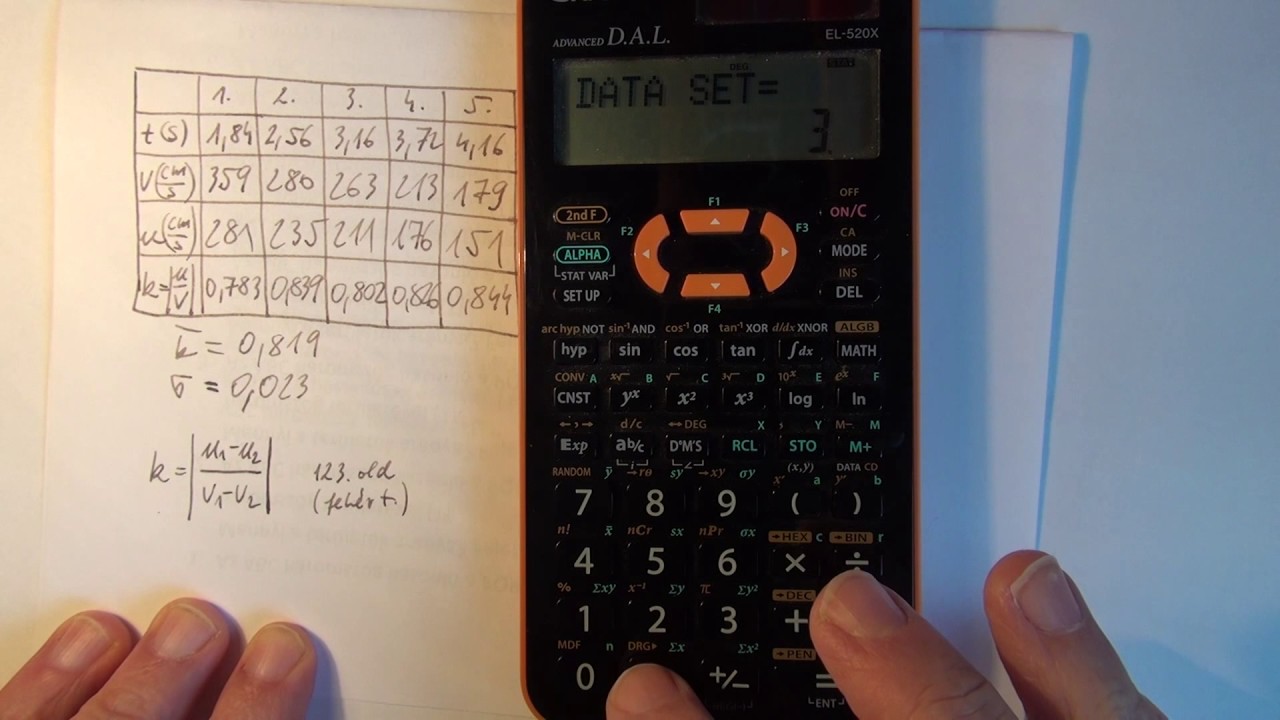 1. 2. 3. 4. 5.
t(s) 1,84 2,56 3,16 3,72 4,16
v(cm/s) 359 280 263 213 179
u(cm/s) 281 235 211 176 151
k=|u/v| 0,783 0,839 0,802 0,826 0,844
k = 0,819
σ = 0,023
k = |u1-u2 / v1-v2| 123. old
(fehér t.)
ADVANCED D.A.L. EL-520X
DEG STAT
DATA SET=
3.
F1
OFF
2nd F F2 F3 ON/C
M-CLR CA
ALPHA MODE
STAT VAR INS
SET UP DEL
F4
arc hyp NOT sin⁻¹ AND cos⁻¹ OR tan⁻¹ XOR d/dx XNOR ALGB
hyp sin cos tan ∫dx MATH
CONV A ˣ√ B √ C ³√ D 10ˣ E eˣ F
CNST yˣ x² x³ log ln
←,→ d/c ↔DEG X , Y M- M
Exp ab/c D°M'S RCL STO M+
RANDOM ȳ →rθ sy →xy σy x' (x,y) a y' DATA CD b
7 8 9 ( )
n! x̄ nCr sx nPr σx →HEX c →BIN r
4 5 6 × ÷
% Σxy x⁻¹ Σy π Σy² →DEC
1 2 3 +
MDF n DRG▸ Σx Σx² →PEN
0 +/− =
ENT